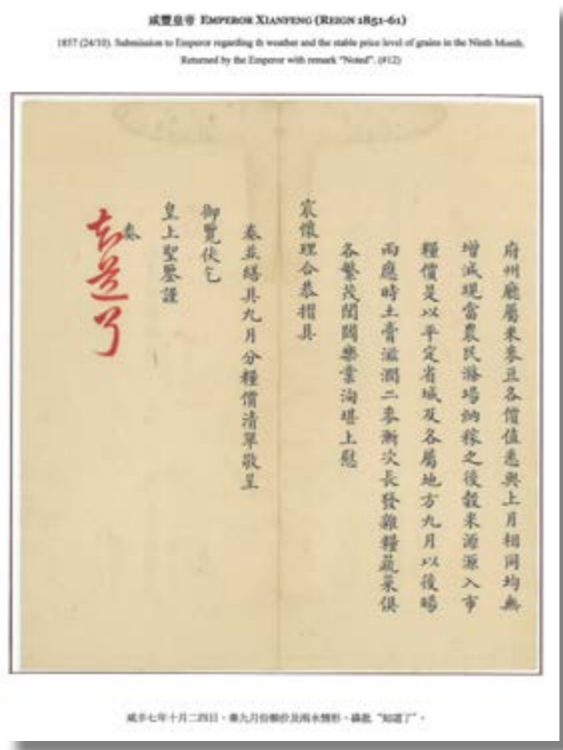 咸豐皇帝 EMPEROR XIANFENG (REIGN 1851-61)
1857 (24/10). Submission to Emperor regarding th weather and the stable price level of grains in the Ninth Month.
Returned by the Emperor with remark "Noted". (#12)
府州廳屬米麥豆各價值悉與上月相同均無
增減現當農民滌場納稼之後穀米源源入市
糧價是以平定省城及各屬地方九月以後暘
雨應時土膏滋潤二麥漸次長發雜糧蔬菜俱
各繁茂閭閻樂業洵堪上慰
宸懷理合恭摺具
奏並繕具九月分糧價清單敬呈
御覽伏乞
皇上聖鑒謹
奏
知道了
咸豐七年十月二四日，奏九月份糧價及雨水情形，硃批 "知道了"。